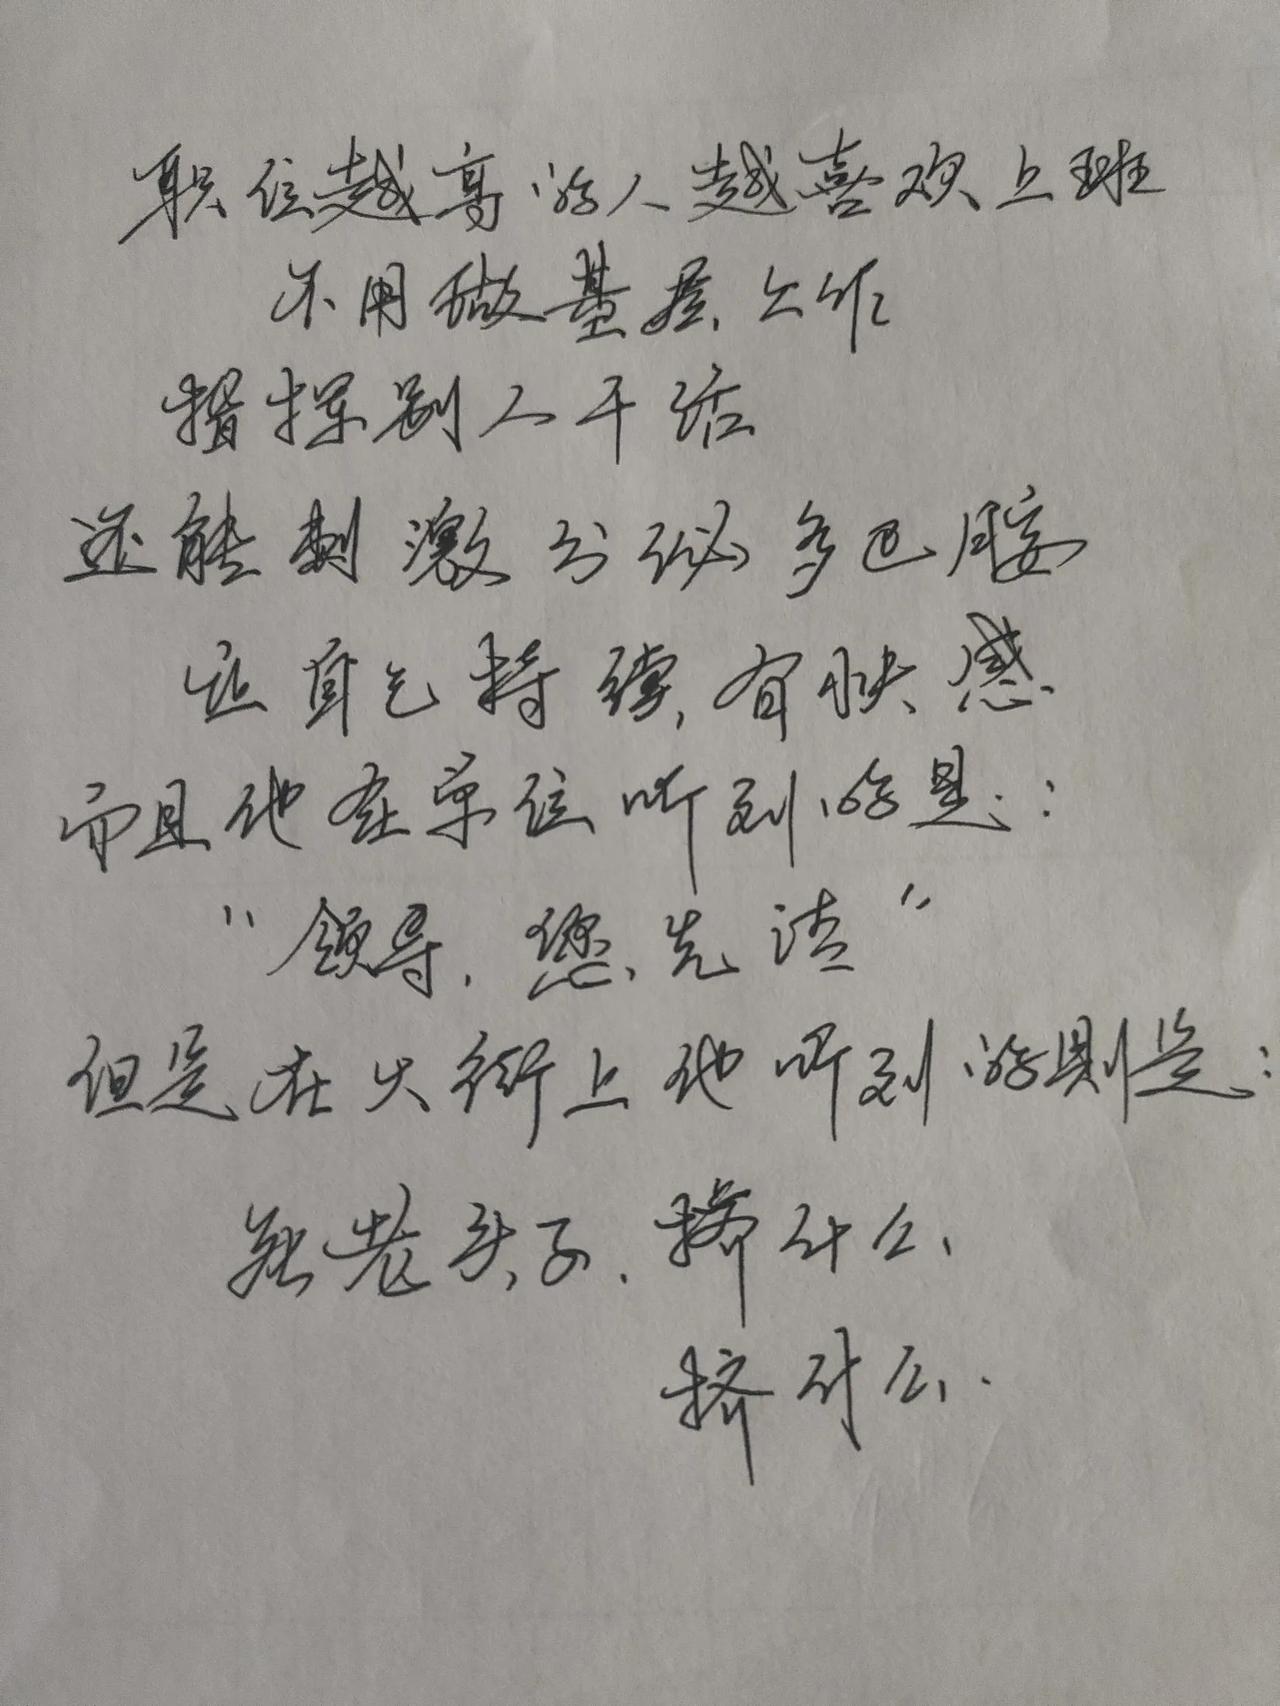 职位越高的人越喜欢上班
不用做基层工作
指挥别人干活
还能刺激分泌多巴胺
让自己持续有快感
而且他在单位听到的是:
“领导,您先请”
但是在大街上他听到的则是:
死老头子,挤什么、
挤什么.